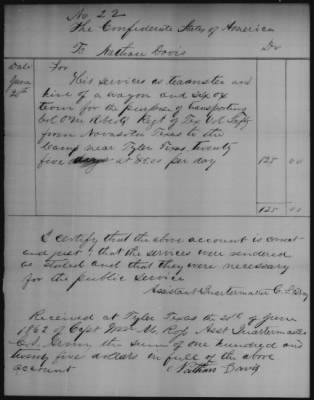 No. 22
The Confederate States of America
To Nathan Davis Dr
Date For
June 20th His services as teamster and
hire of a wagon and six ox
team for the purpose of transporting
Col Regt of Tex Vol Infty
from Navasota Texas to the
camp near Tyler Texas. twenty
five days at $5.00 per day 125 00
125 00
I certify that the above account is correct
and just; that the services were rendered
as stated and that they were necessary
for the public service
Assistant Quartermaster C. S. Army
Received at Tyler Texas the 20th of June
1862 of Capt Wm M. Asst Quartermaster
C.S. Army, the sum of one hundred and
twenty five dollars in full of the above
account Nathan Davis